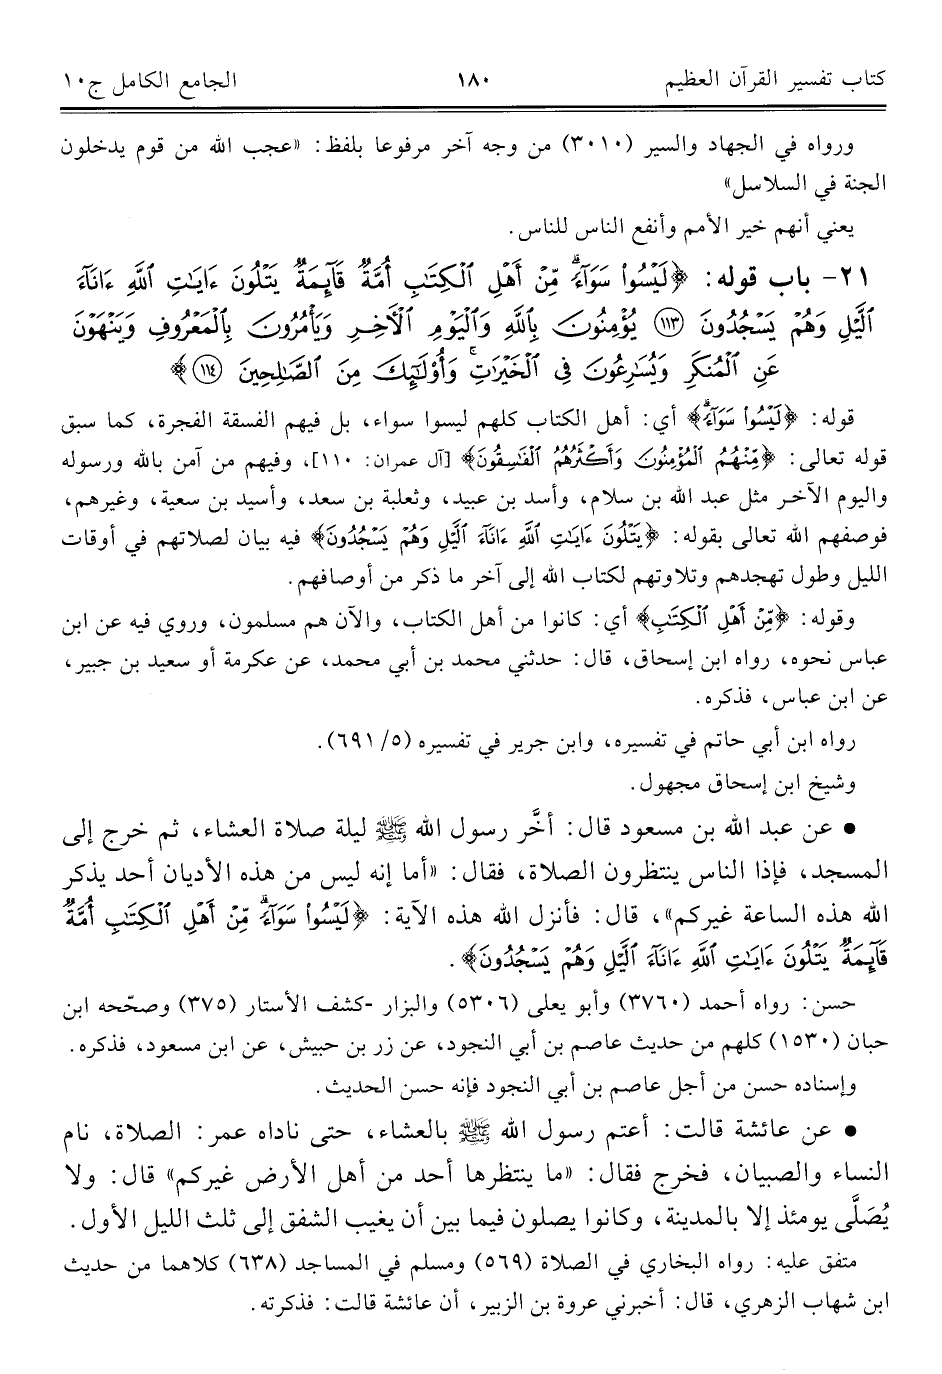 كتاب تفسير القرآن العظيم ١٨٠ الجامع الكامل ج١٠
ورواه في الجهاد والسير (٣٠١٠) من وجه آخر مرفوعا بلفظ: «عجب الله من قوم يدخلون
الجنة في السلاسل»
يعني أنهم خير الأمم وأنفع الناس للناس.
٢١- باب قوله: ﴿لَيْسُوا۟ سَوَآءً ۗ مِّنْ أَهْلِ ٱلْكِتَٰبِ أُمَّةٌ قَآئِمَةٌ يَتْلُونَ ءَايَٰتِ ٱللَّهِ ءَانَآءَ
ٱلَّيْلِ وَهُمْ يَسْجُدُونَ ١١٣ يُؤْمِنُونَ بِٱللَّهِ وَٱلْيَوْمِ ٱلْأَخِرِ وَيَأْمُرُونَ بِٱلْمَعْرُوفِ وَيَنْهَوْنَ
عَنِ ٱلْمُنكَرِ وَيُسَٰرِعُونَ فِى ٱلْخَيْرَٰتِ ۖ وَأُو۟لَٰٓئِكَ مِنَ ٱلصَّٰلِحِينَ ١١٤﴾
قوله: ﴿لَيْسُوا۟ سَوَآءً ۗ﴾ أي: أهل الكتاب كلهم ليسوا سواء، بل فيهم الفسقة الفجرة، كما سبق
قوله تعالى: ﴿مِّنْهُمُ ٱلْمُؤْمِنُونَ وَأَكْثَرُهُمُ ٱلْفَٰسِقُونَ﴾ [آل عمران: ١١٠]، وفيهم من آمن بالله ورسوله
واليوم الآخر مثل عبد الله بن سلام، وأسد بن عبيد، وثعلبة بن سعد، وأسيد بن سعية، وغيرهم،
فوصفهم الله تعالى بقوله: ﴿يَتْلُونَ ءَايَٰتِ ٱللَّهِ ءَانَآءَ ٱلَّيْلِ وَهُمْ يَسْجُدُونَ﴾ فيه بيان لصلاتهم في أوقات
الليل وطول تهجدهم وتلاوتهم لكتاب الله إلى آخر ما ذكر من أوصافهم.
وقوله: ﴿مِّنْ أَهْلِ ٱلْكِتَٰبِ﴾ أي: كانوا من أهل الكتاب، والآن هم مسلمون، وروي فيه عن ابن
عباس نحوه، رواه ابن إسحاق، قال: حدثني محمد بن أبي محمد، عن عكرمة أو سعيد بن جبير،
عن ابن عباس، فذكره.
رواه ابن أبي حاتم في تفسيره، وابن جرير في تفسيره (٥/ ٦٩١).
وشيخ ابن إسحاق مجهول.
• عن عبد الله بن مسعود قال: أخَّر رسول الله ﷺ ليلة صلاة العشاء، ثم خرج إلى
المسجد، فإذا الناس ينتظرون الصلاة، فقال: «أما إنه ليس من هذه الأديان أحد يذكر
الله هذه الساعة غيركم»، قال: فأنزل الله هذه الآية: ﴿لَيْسُوا۟ سَوَآءً ۗ مِّنْ أَهْلِ ٱلْكِتَٰبِ أُمَّةٌ
قَآئِمَةٌ يَتْلُونَ ءَايَٰتِ ٱللَّهِ ءَانَآءَ ٱلَّيْلِ وَهُمْ يَسْجُدُونَ﴾.
حسن: رواه أحمد (٣٧٦٠) وأبو يعلى (٥٣٠٦) والبزار -كشف الأستار (٣٧٥) وصحّحه ابن
حبان (١٥٣٠) كلهم من حديث عاصم بن أبي النجود، عن زر بن حبيش، عن ابن مسعود، فذكره.
وإسناده حسن من أجل عاصم بن أبي النجود فإنه حسن الحديث.
• عن عائشة قالت: أعتم رسول الله ﷺ بالعشاء، حتى ناداه عمر: الصلاة، نام
النساء والصبيان، فخرج فقال: «ما ينتظرها أحد من أهل الأرض غيركم» قال: ولا
يُصَلَّى يومئذ إلا بالمدينة، وكانوا يصلون فيما بين أن يغيب الشفق إلى ثلث الليل الأول.
متفق عليه: رواه البخاري في الصلاة (٥٦٩) ومسلم في المساجد (٦٣٨) كلاهما من حديث
ابن شهاب الزهري، قال: أخبرني عروة بن الزبير، أن عائشة قالت: فذكرته.